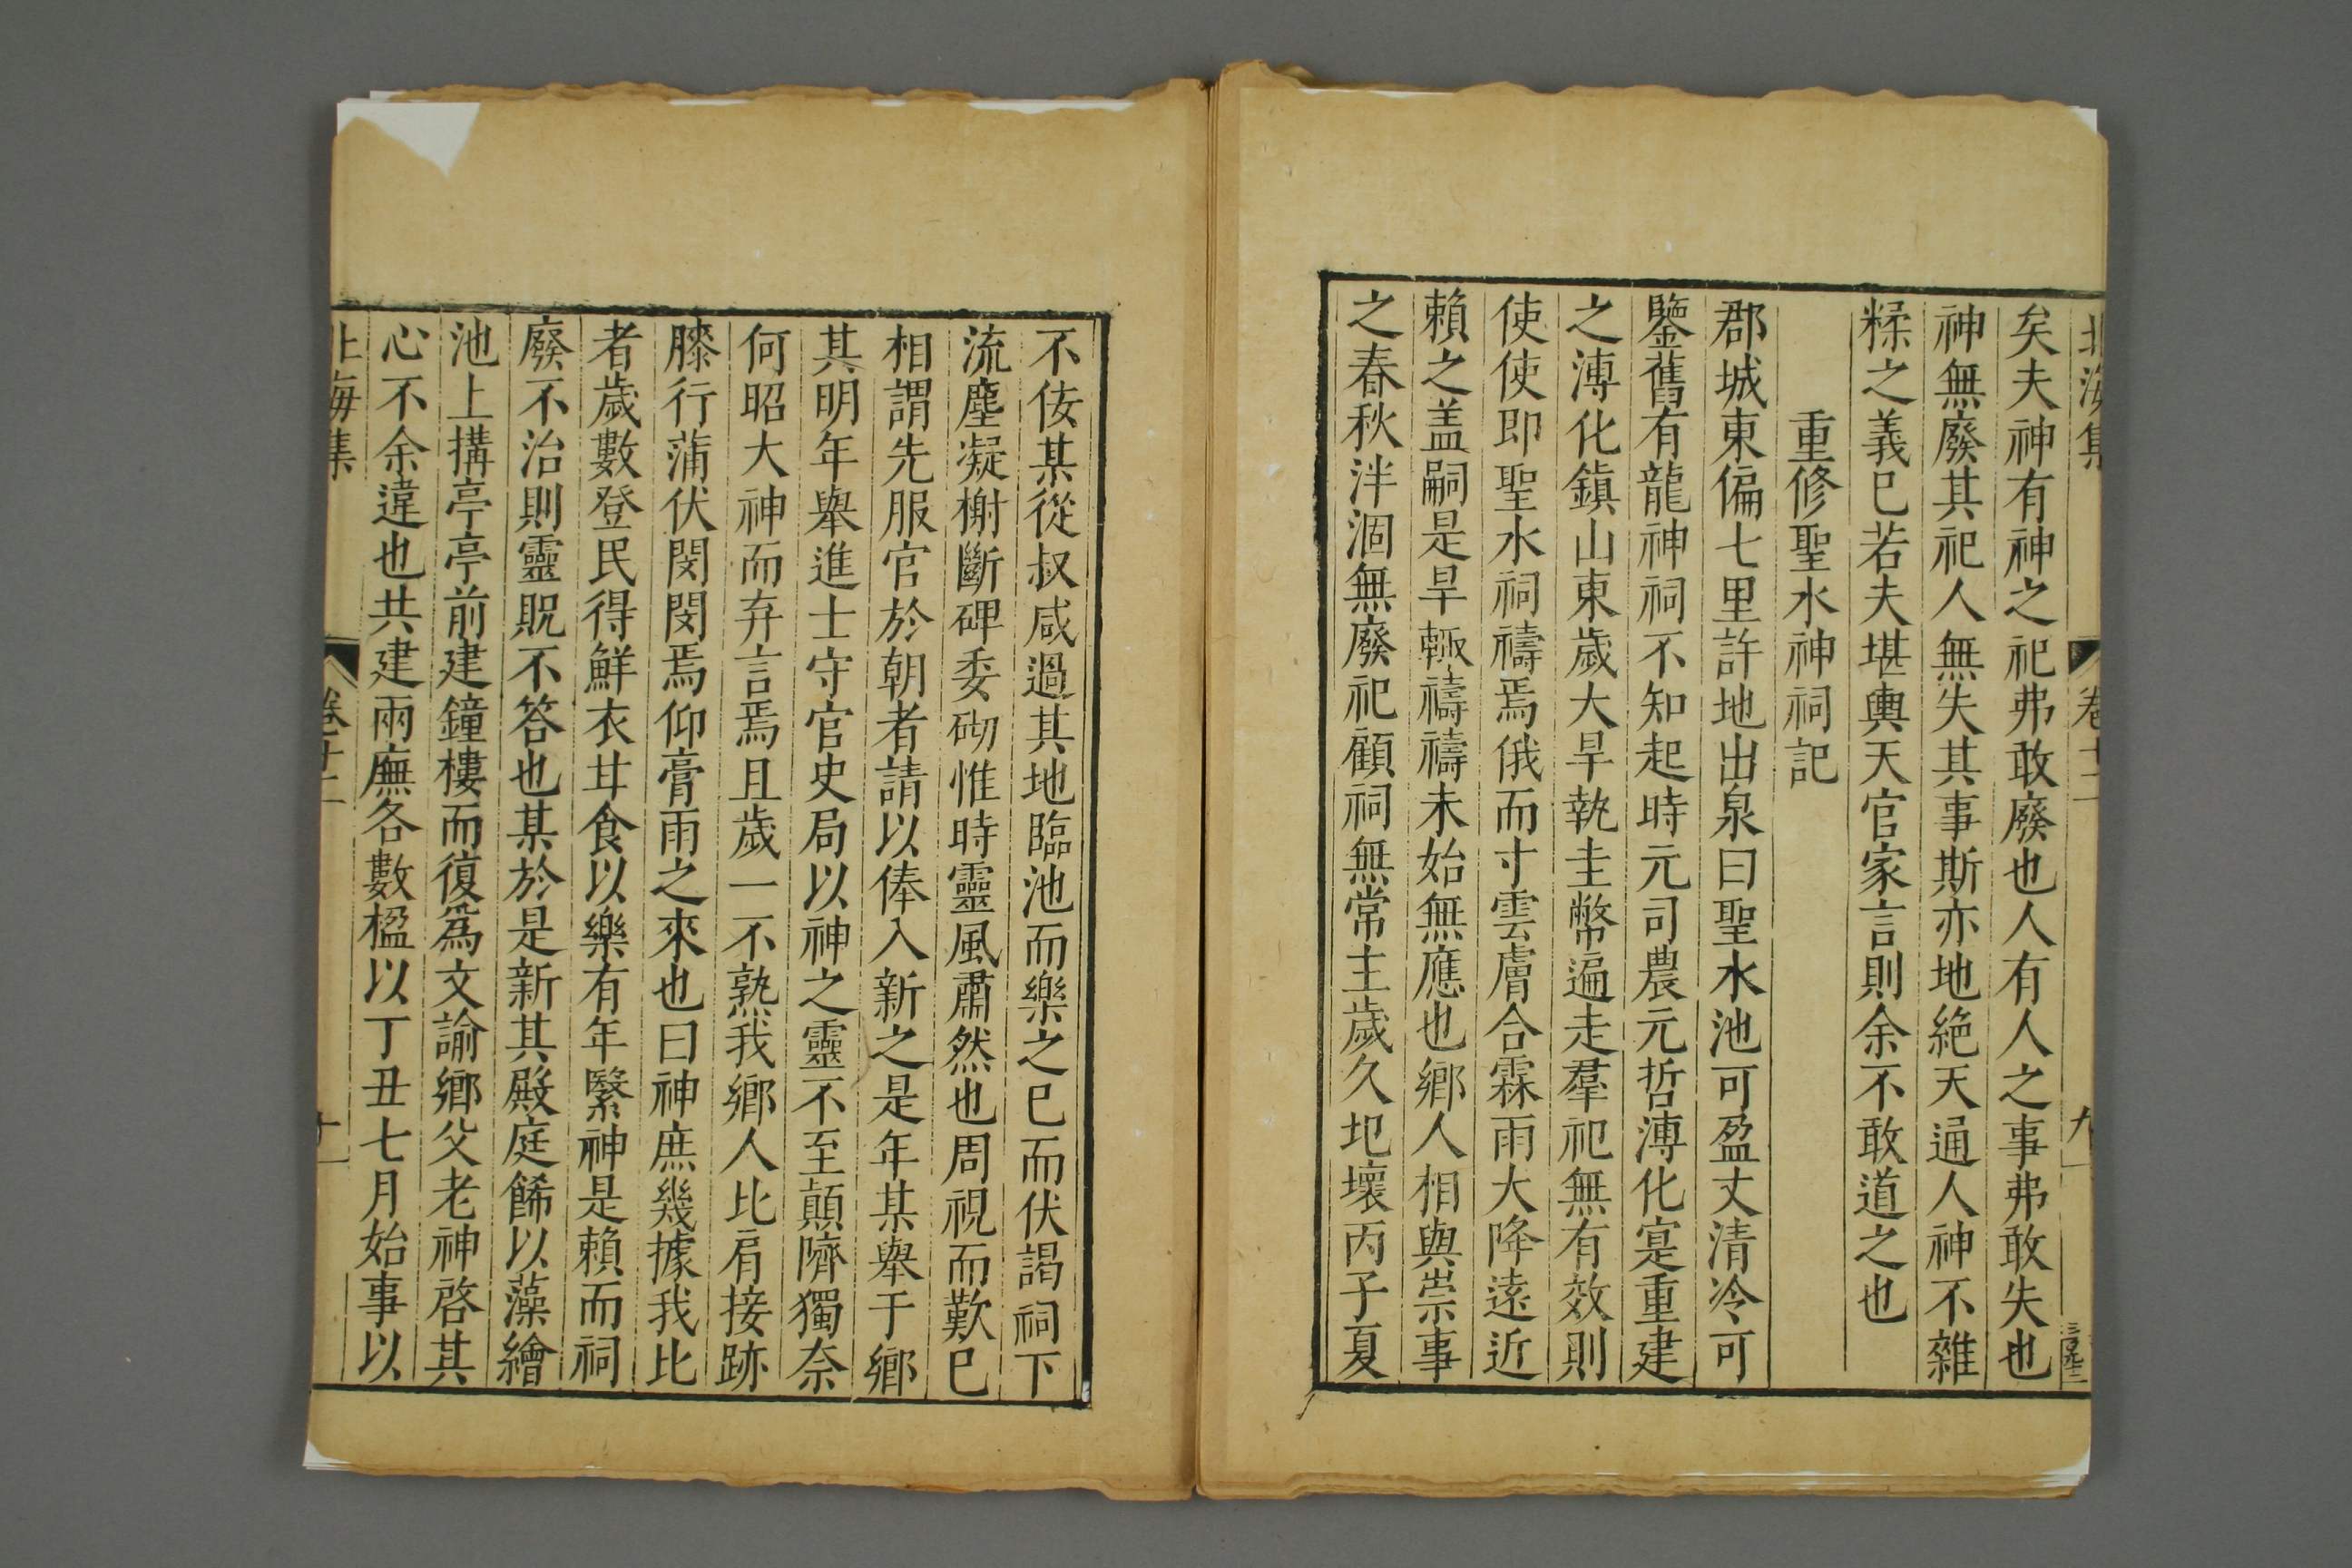 北海集 卷十二 九
矣夫神有神之祀弗敢廢也人有人之事弗敢失也
神無廢其祀人無失其事斯亦地絶天通人神不雜
糅之義已若夫堪輿天官家言則余不敢道之也
重修聖水神祠記
郡城東偏七里許地出泉曰聖水池可盈丈清冷可
鑒舊有龍神祠不知起時元司農元哲溥化寔重建
之溥化鎮山東歲大旱執圭幣遍走羣祀無有效則
使使即聖水祠禱焉俄而寸雲膚合霖雨大降遠近
賴之盖嗣是旱輙禱禱未始無應也鄉人相與崇事
之春秋泮涸無廢祀顧祠無常主歲久圮壞丙子夏
不佞某從叔咸過其地臨池而樂之已而伏謁祠下
流塵凝榭斷碑委砌惟時靈風肅然也周視而歎已
相謂先服官於朝者請以俸入新之是年某舉于鄉
其明年舉進士守官史局以神之靈不至顛隮獨奈
何昭大神而弃言焉且歲一不熟我鄉人比肩接跡
膝行蒲伏閔閔焉仰膏雨之來也曰神庶幾據我比
者歲數登民得鮮衣甘食以樂有年繄神是賴而祠
廢不治則靈貺不答也某於是新其殿庭餙以藻繪
池上搆亭亭前建鐘樓而復爲文諭鄉父老神啓其
心不余違也共建兩廡各數楹以丁丑七月始事以
北海集 卷十二 十